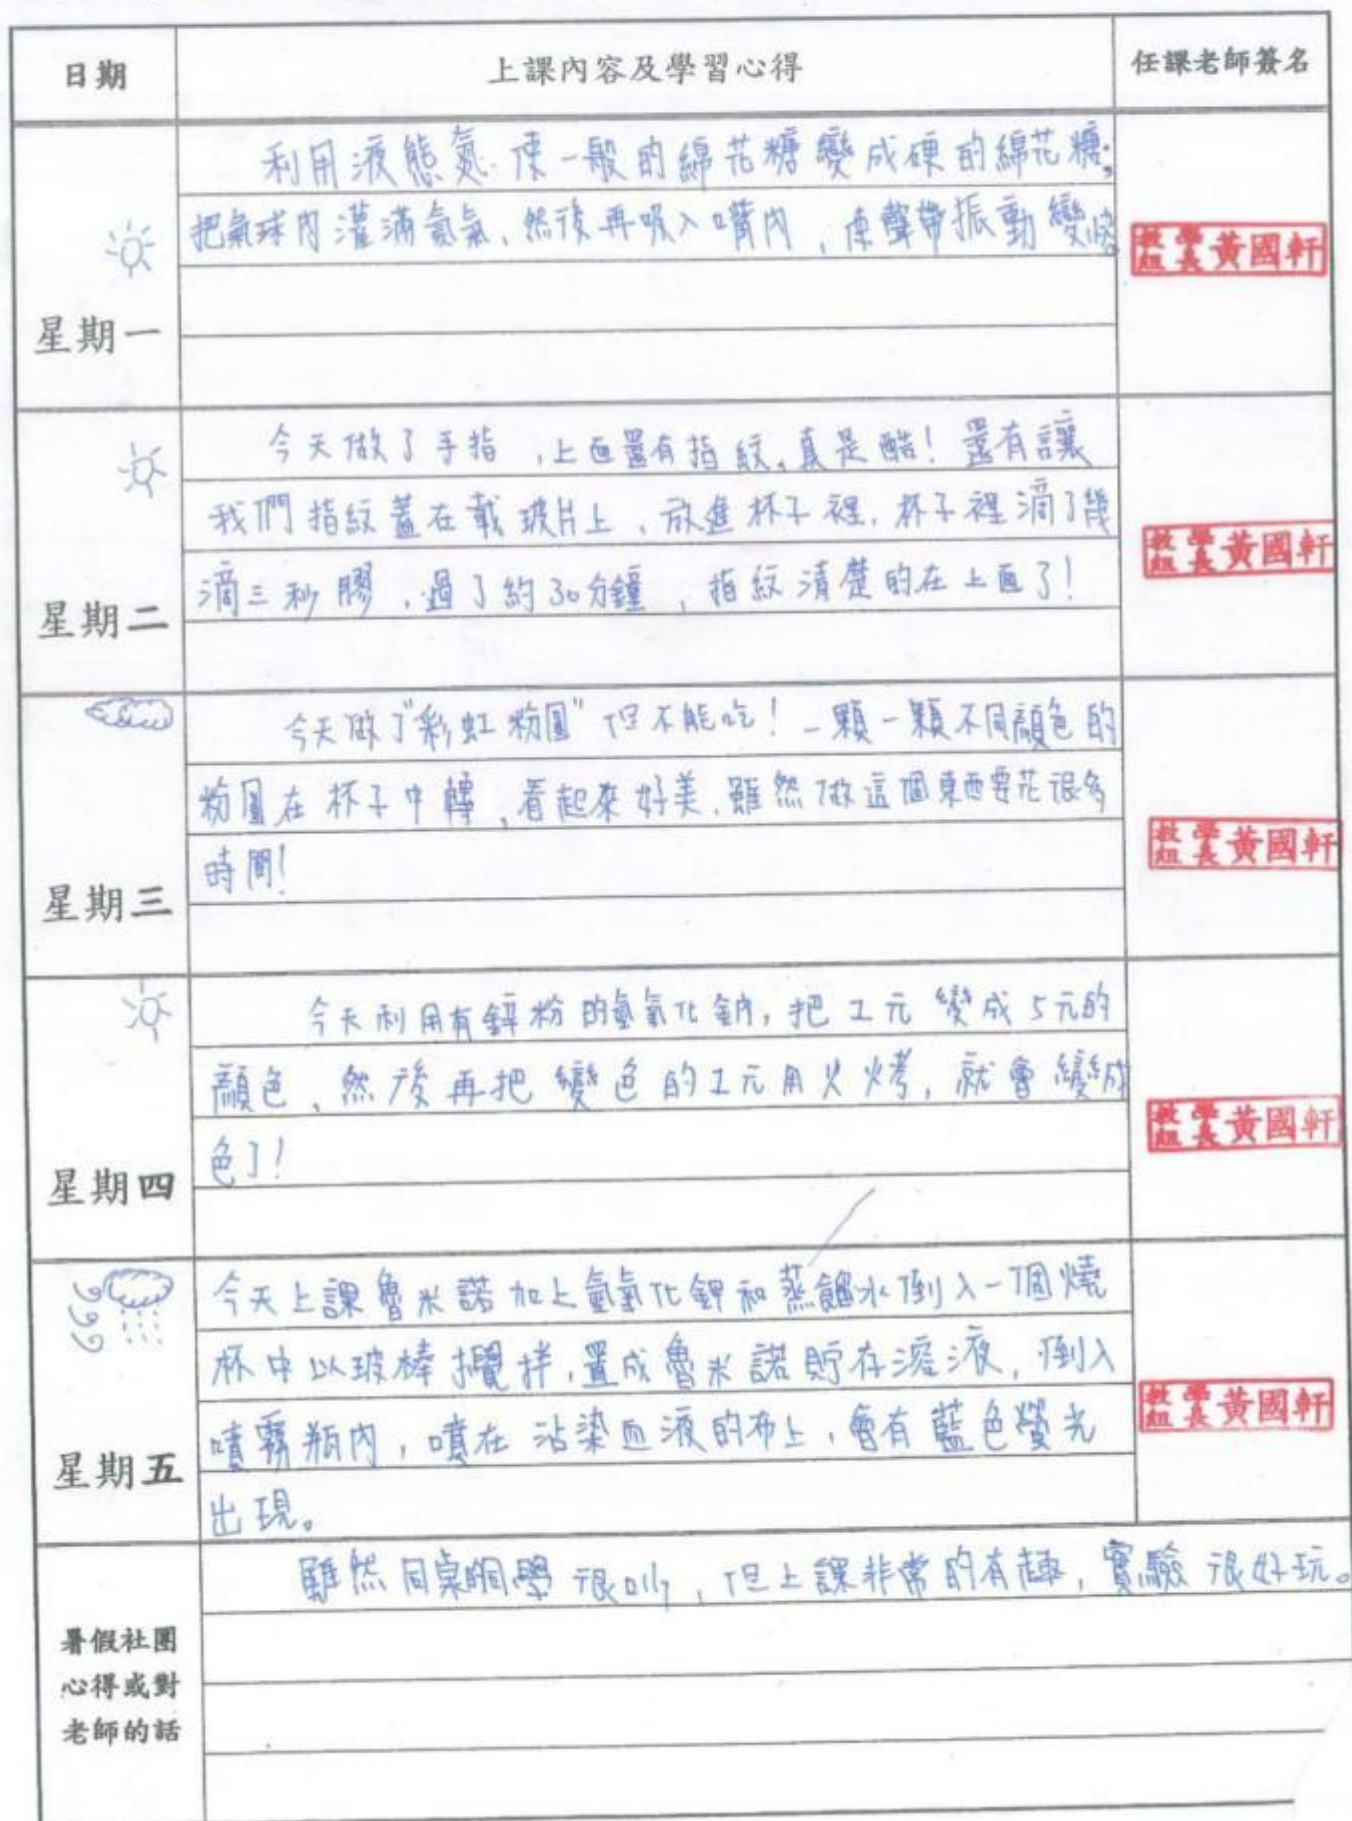 日期 上課內容及學習心得 任課老師簽名
利用液態氮使一般的綿花糖變成硬的綿花糖,
把氣球內灌滿氦氣、然後再吸入嘴內,使聲帶振動變
教學組長黃國軒
星期一
今天做了手指,上面還有指紋,真是酷!還有讓
我們指紋蓋在載玻片上,放進杯子裡,杯子裡滴了幾
滴三秒膠,過了約30分鐘,指紋清楚的在上面了!
教學組長黃國軒
星期二
今天做了"彩虹粉圓"但不能吃!一顆一顆不同顏色的
粉圓在杯子中轉,看起來好美,雖然做這個東西要花很多
時間!
教學組長黃國軒
星期三
今天利用有鋅粉的氫氧化鈉,把1元變成5元的
顏色、然後再把變色的1元用火烤,就會變成
色了!
教學組長黃國軒
星期四
今天上課魯米諾加上氫氧化鉀和蒸餾水倒入一個燒
杯中以玻棒攪拌,置成魯米諾貯存溶液,倒入
噴霧瓶內,噴在沾染血液的布上,會有藍色螢光
出現。
教學組長黃國軒
星期五
雖然同桌的同學很吵,但上課非常的有趣,實驗很好玩。
暑假社團
心得或對
老師的話